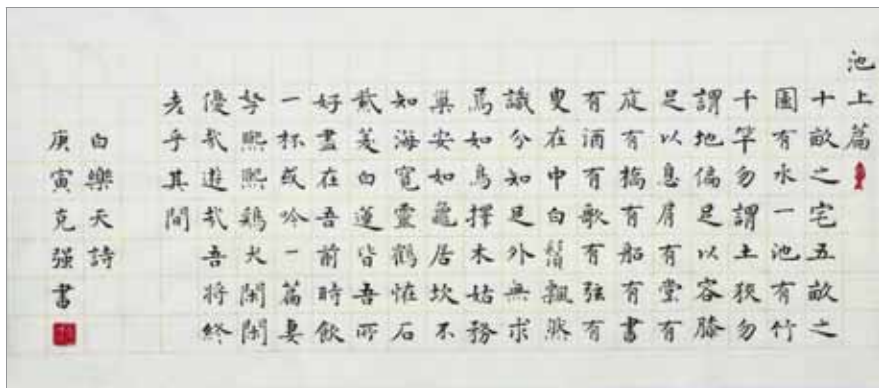 池上篇
十畝之宅五畝之
園有水一池有竹
千竿勿謂土狹勿
謂地偏足以容膝
足以息肩有堂有
庭有橋有船有書
有酒有歌有弦有
叟在中白鬚飄然
識分知足外無求
焉如鳥擇木姑務
巢安如龜居坎不
知海寬靈鶴怪石
紫菱白蓮皆吾所
好盡在吾前時飲
一杯或吟一篇妻
孥熙熙鷄犬閑閑
優哉遊哉吾將終
老乎其間
白樂天詩
庚寅克强書